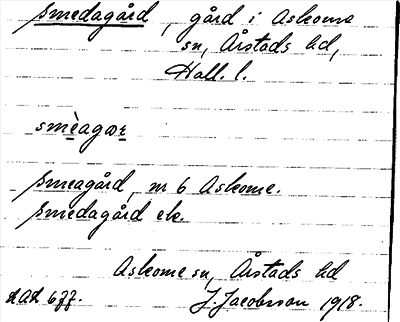 Smedagård, gård i Askome
sn, Årstads hd,
Hall. l.
smèagωr
Smeagård, nr 6 Askome.
Smedagård ek.
Askome sn, Årstads hd
J. Jacobsson 1918.